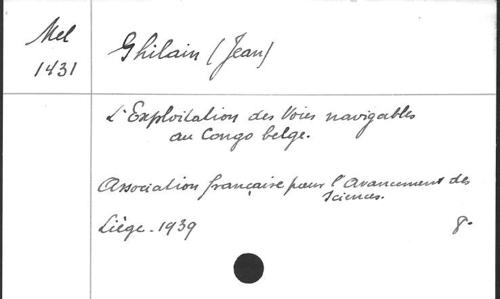 Mel
1431
Ghilain (Jean)
L'Exploitation des Voies navigables
au Congo belge.
Association française pour l'Avancement des
Sciences.
Liège. 1939
8.